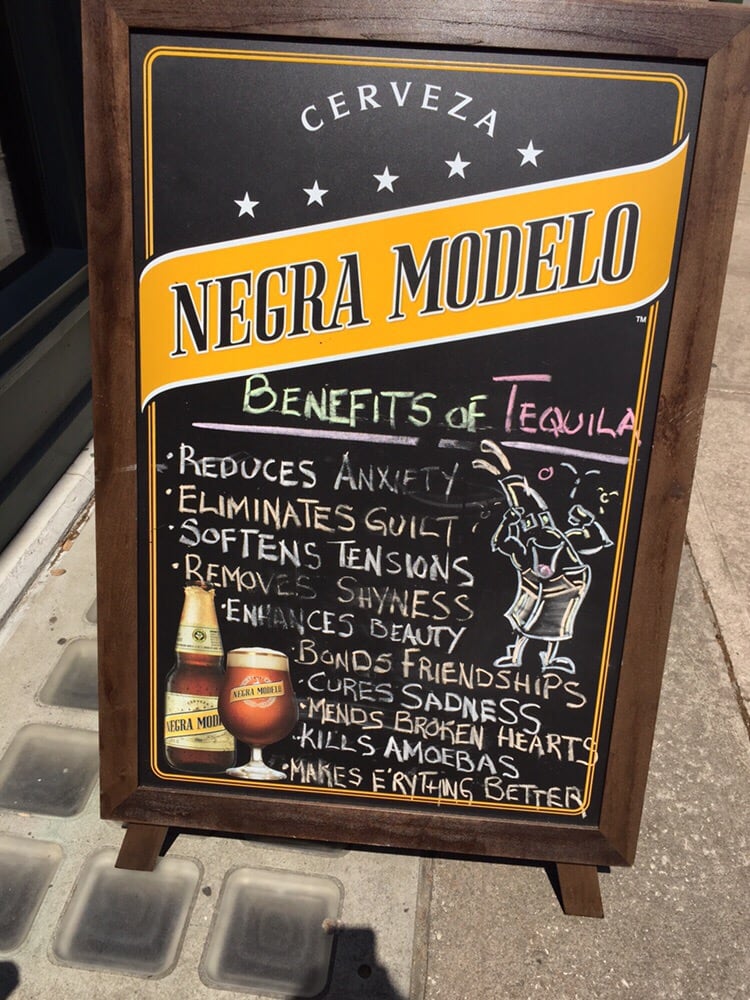 CERVEZA
NEGRA MODELO
TM
BENEFITS OF TEQUILA
• REDUCES ANXIETY
• ELIMINATES GUILT
• SOFTENS TENSIONS
• REMOVES SHYNESS
• ENHANCES BEAUTY
• BONDS FRIENDSHIPS
• CURES SADNESS
• MENDS BROKEN HEARTS
• KILLS AMOEBAS
• MAKES E'RYTHING BETTER
NEGRA MODELO
NEGRA MOD